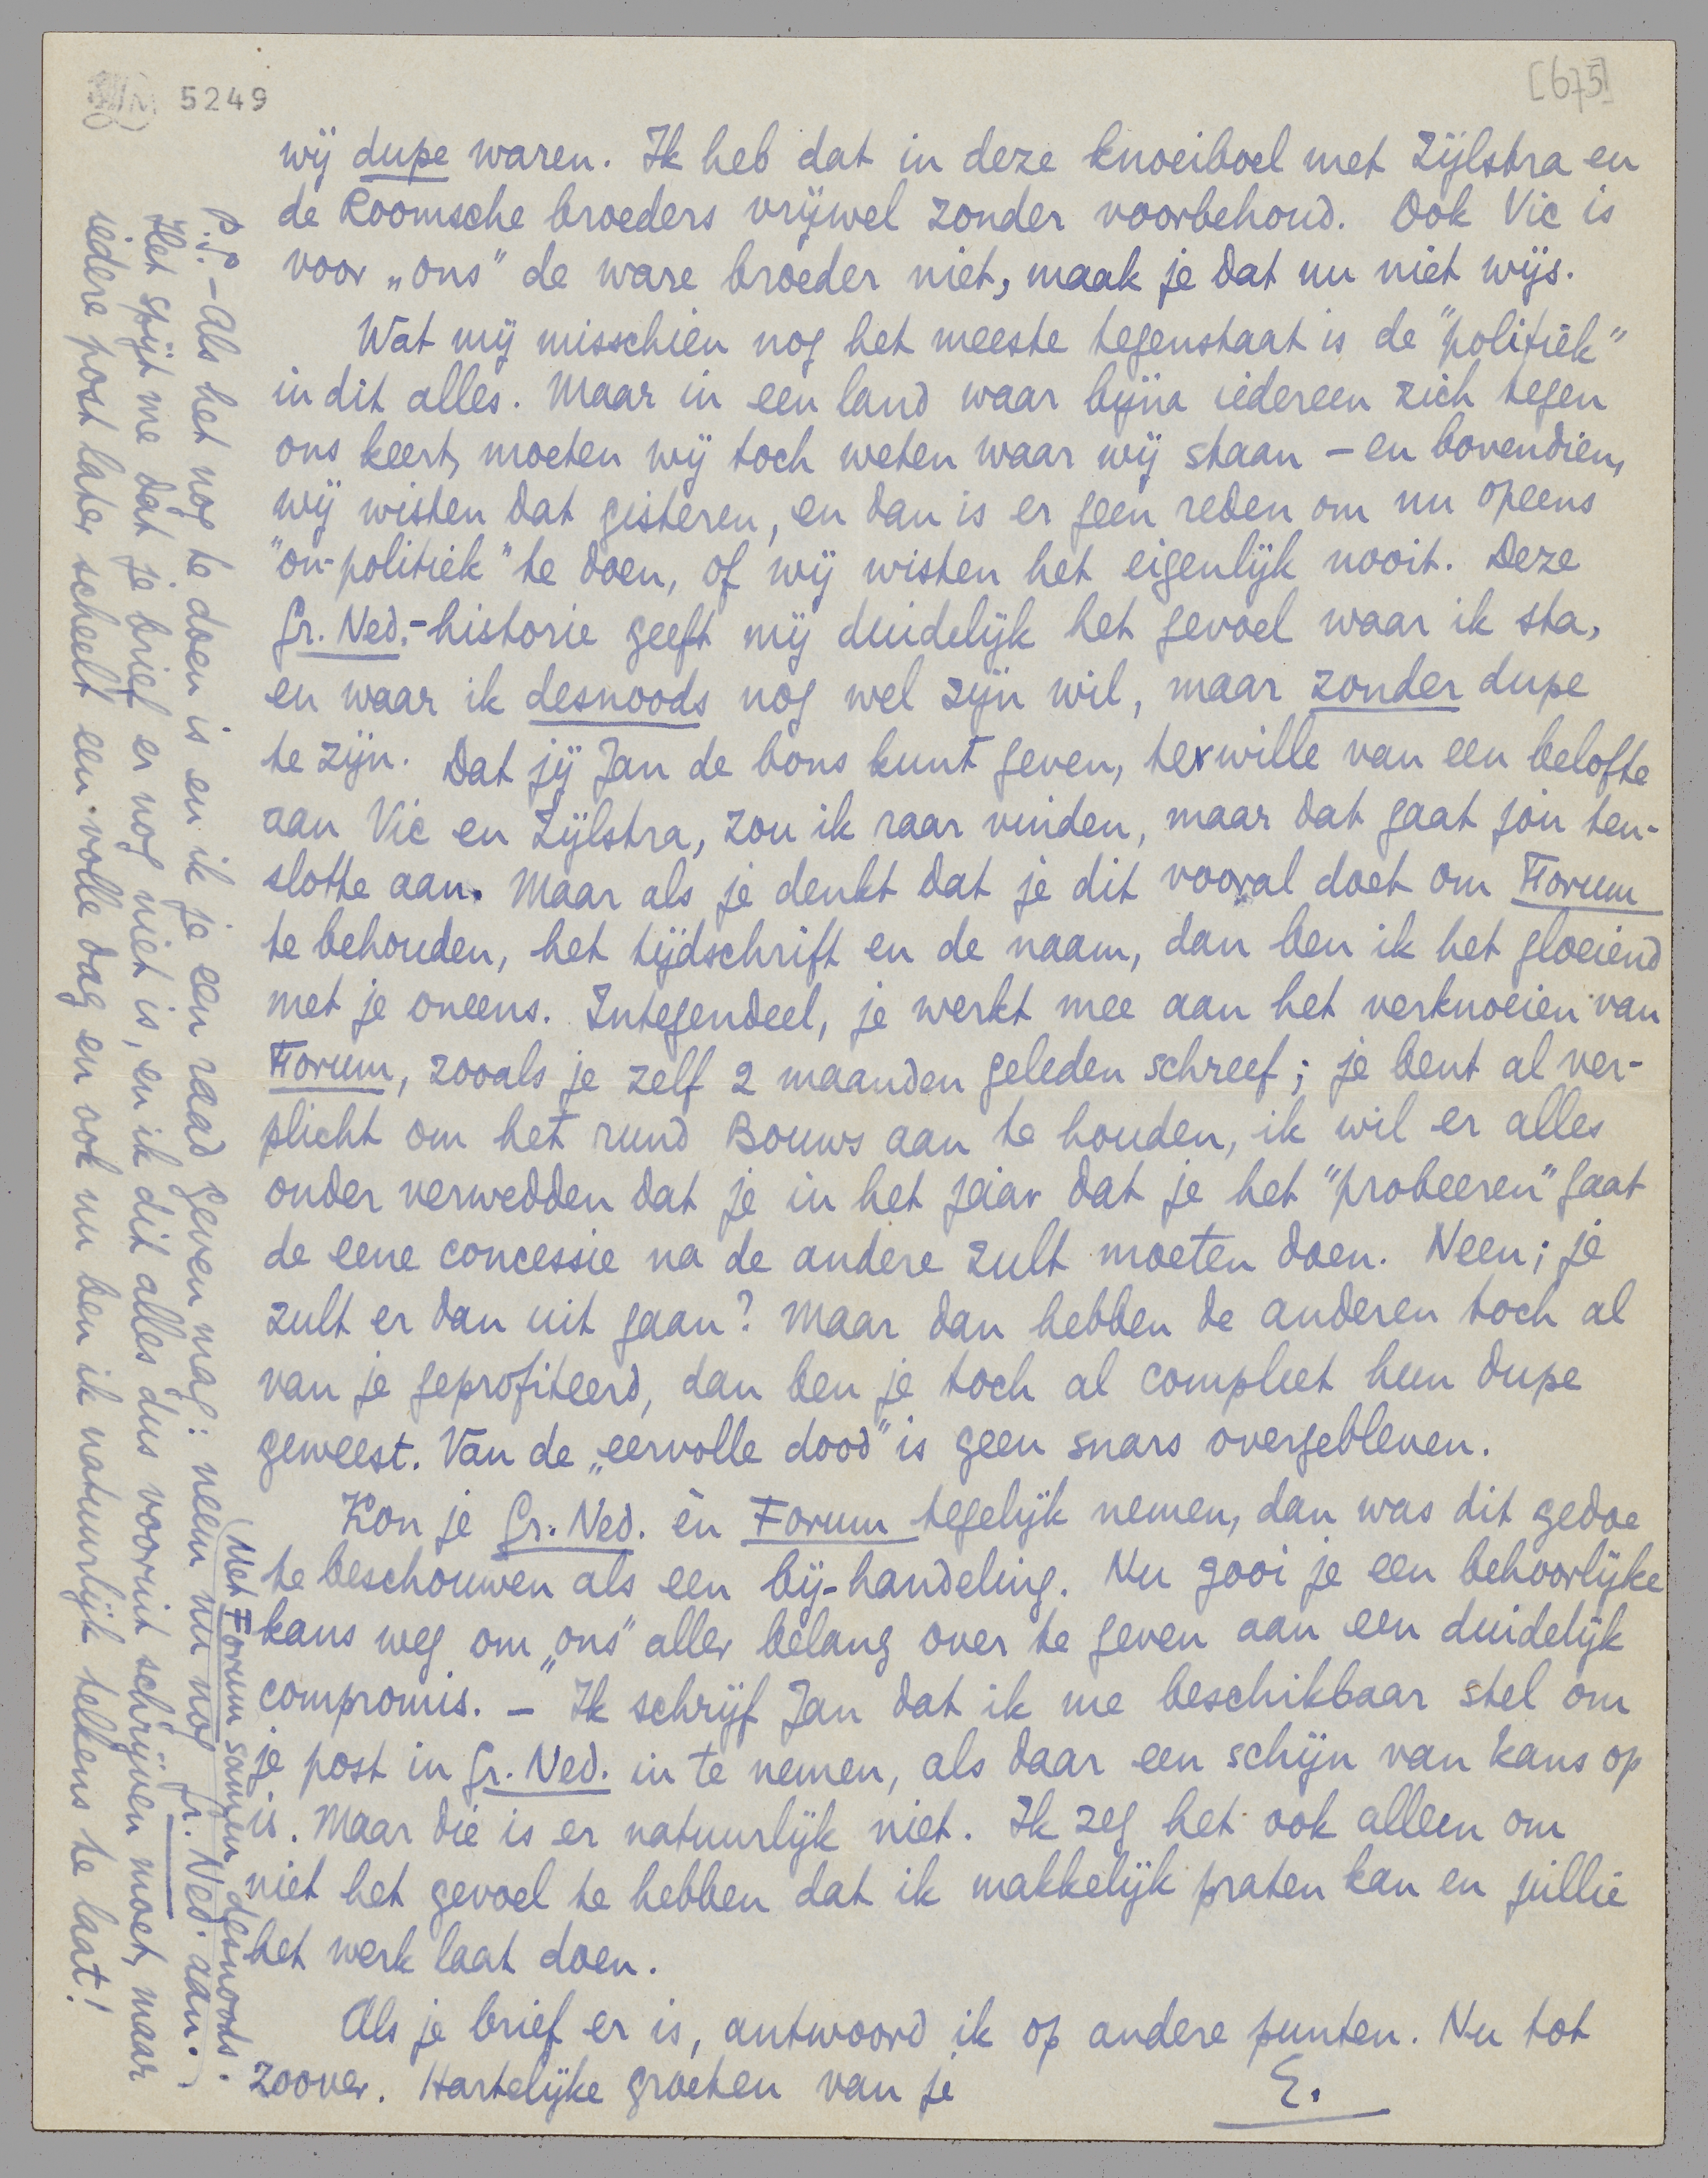 5249
[675]
wij dupe waren. Ik heb dat in deze knoeiboel met Zijlstra en
de Roomsche broeders vrijwel zonder voorbehoud. Ook Vic is
voor „ons" de ware broeder niet, maak je dat nu niet wijs.
Wat mij misschien nog het meeste tegenstaat is de "politiek"
in dit alles. Maar in een land waar bijna iedereen zich tegen
ons keert, moeten wij toch weten waar wij staan – en bovendien,
wij wisten dat gisteren, en dan is er geen reden om nu opeens
"on-politiek" te doen, of wij wisten het eigenlijk nooit. Deze
Gr. Ned.-historie geeft mij duidelijk het gevoel waar ik sta,
en waar ik desnoods nog wel zijn wil, maar zonder dupe
te zijn. Dat jij Jan de bons kunt geven, terwille van een belofte
aan Vic en Zijlstra, zou ik raar vinden, maar dat gaat jou ten-
slotte aan. Maar als je denkt dat je dit vooral doet om Forum
te behouden, het tijdschrift en de naam, dan ben ik het gloeiend
met je oneens. Integendeel, je werkt mee aan het verknoeien van
Forum, zooals je zelf 2 maanden geleden schreef; je bent al ver-
plicht om het rund Bouws aan te houden, ik wil er alles
onder verwedden dat je in het jaar dat je het "probeeren" gaat
de eene concessie na de andere zult moeten doen. Neen; je
zult er dan uit gaan? Maar dan hebben de anderen toch al
van je geprofiteerd, dan ben je toch al compleet hun dupe
geweest. Van de „eervolle dood" is geen snars overgebleven.
Kon je Gr. Ned. èn Forum tegelijk nemen, dan was dit gedoe
te beschouwen als een bij-handeling. Nu gooi je een behoorlijke
kans weg om „ons" aller belang over te geven aan een duidelijk
compromis. – Ik schrijf Jan dat ik me beschikbaar stel om
je post in Gr. Ned. in te nemen, als daar een schijn van kans op
is. Maar die is er natuurlijk niet. Ik zeg het ook alleen om
niet het gevoel te hebben dat ik makkelijk praten kan en jullie
het werk laat doen.
Als je brief er is, antwoord ik op andere punten. Nu tot
zoover. Hartelijke groeten van je
E.
P.S. – Als het nog te doen is en ik je een raad geven mag: neem nu nog Gr. Ned. aan.
(Met Forum samen, desnoods.)
Het spijt me dat je brief er nog niet is, en ik dit alles dus vooruit schrijven moet, maar
iedere post later scheelt een volle dag en ook nu ben ik natuurlijk telkens te laat!